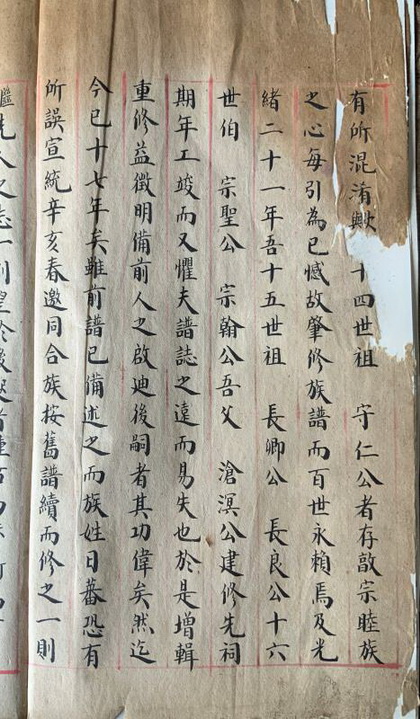 有所混淆歟 十四世祖 守仁公者存敦宗睦族
之心每引為已憾故肇修族譜而百世永賴焉及光
緒二十一年吾十五世祖 長卿公 長良公十六
世伯 宗聖公 宗翰公吾父 滄溟公建修先祠
期年工竣而又懼夫譜誌之遠而易失也於是增輯
重修益徵明備前人之啟迪後嗣者其功偉矣然迄
今已十七年矣雖前譜已備述之而族姓日蕃恐有
所誤宣統辛亥春邀同合族按舊譜續而修之一則
繼先人之志一則望於後